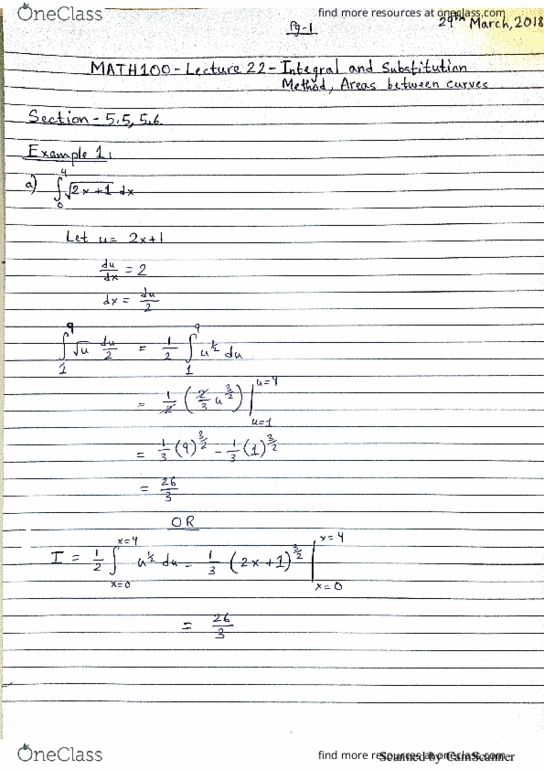 OneClass
find more resources at oneclass.com
Pg-1
29th March, 2018
MATH100 - Lecture 22 - Integral and Substitution
Method, Areas between curves
Section - 5.5, 5.6.
Example 1:
a) ∫₀⁴ √(2x+1) dx
Let u = 2x+1
du/dx = 2
dx = du/2
∫₁⁹ √u du/2 = 1/2 ∫₁⁹ u^(1/2) du
= 1/2 (2/3 u^(3/2)) |_(u=1)^(u=9)
= 1/3 (9)^(3/2) - 1/3 (1)^(3/2)
= 26/3
OR
I = 1/2 ∫_(x=0)^(x=4) u^(1/2) du = 1/3 (2x+1)^(3/2) |_(x=0)^(x=4)
= 26/3
OneClass
find more resources at oneclass.com
Scanned by CamScanner